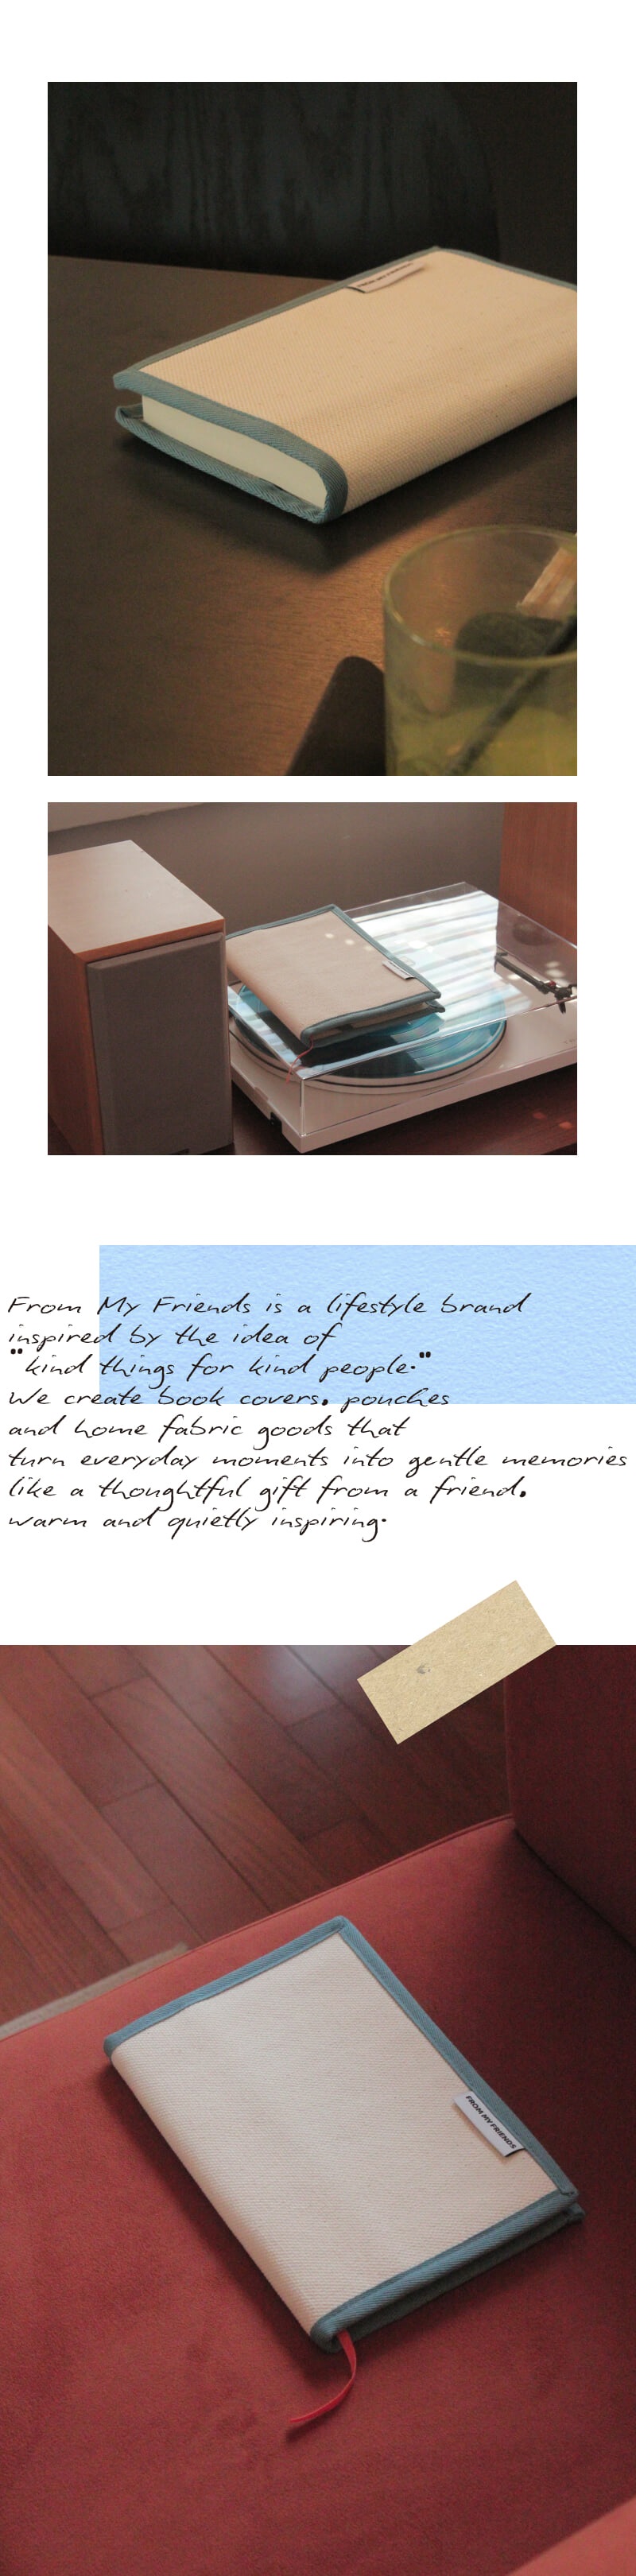 FROM MY FRIENDS
From My Friends is a lifestyle brand
inspired by the idea of
"kind things for kind people."
We create book covers. pouches
and home fabric goods that
turn everyday moments into gentle memories
like a thoughtful gift from a friend.
warm and quietly inspiring.
FROM MY FRIENDS